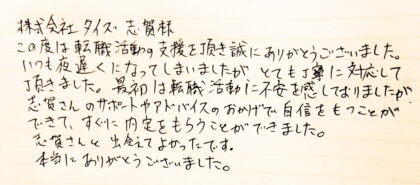 株式会社 タイズ 志賀様
この度は転職活動の支援を頂き誠にありがとうございました。
いつも夜遅くになってしまいましたが とても丁寧に対応して
頂きました。最初は転職活動に不安を感じておりましたが
志賀さんのサポートやアドバイスのおかげで自信をもつことが
できて、すぐに内定をもらうことができました。
志賀さんと出会えてよかったです。
本当にありがとうございました。